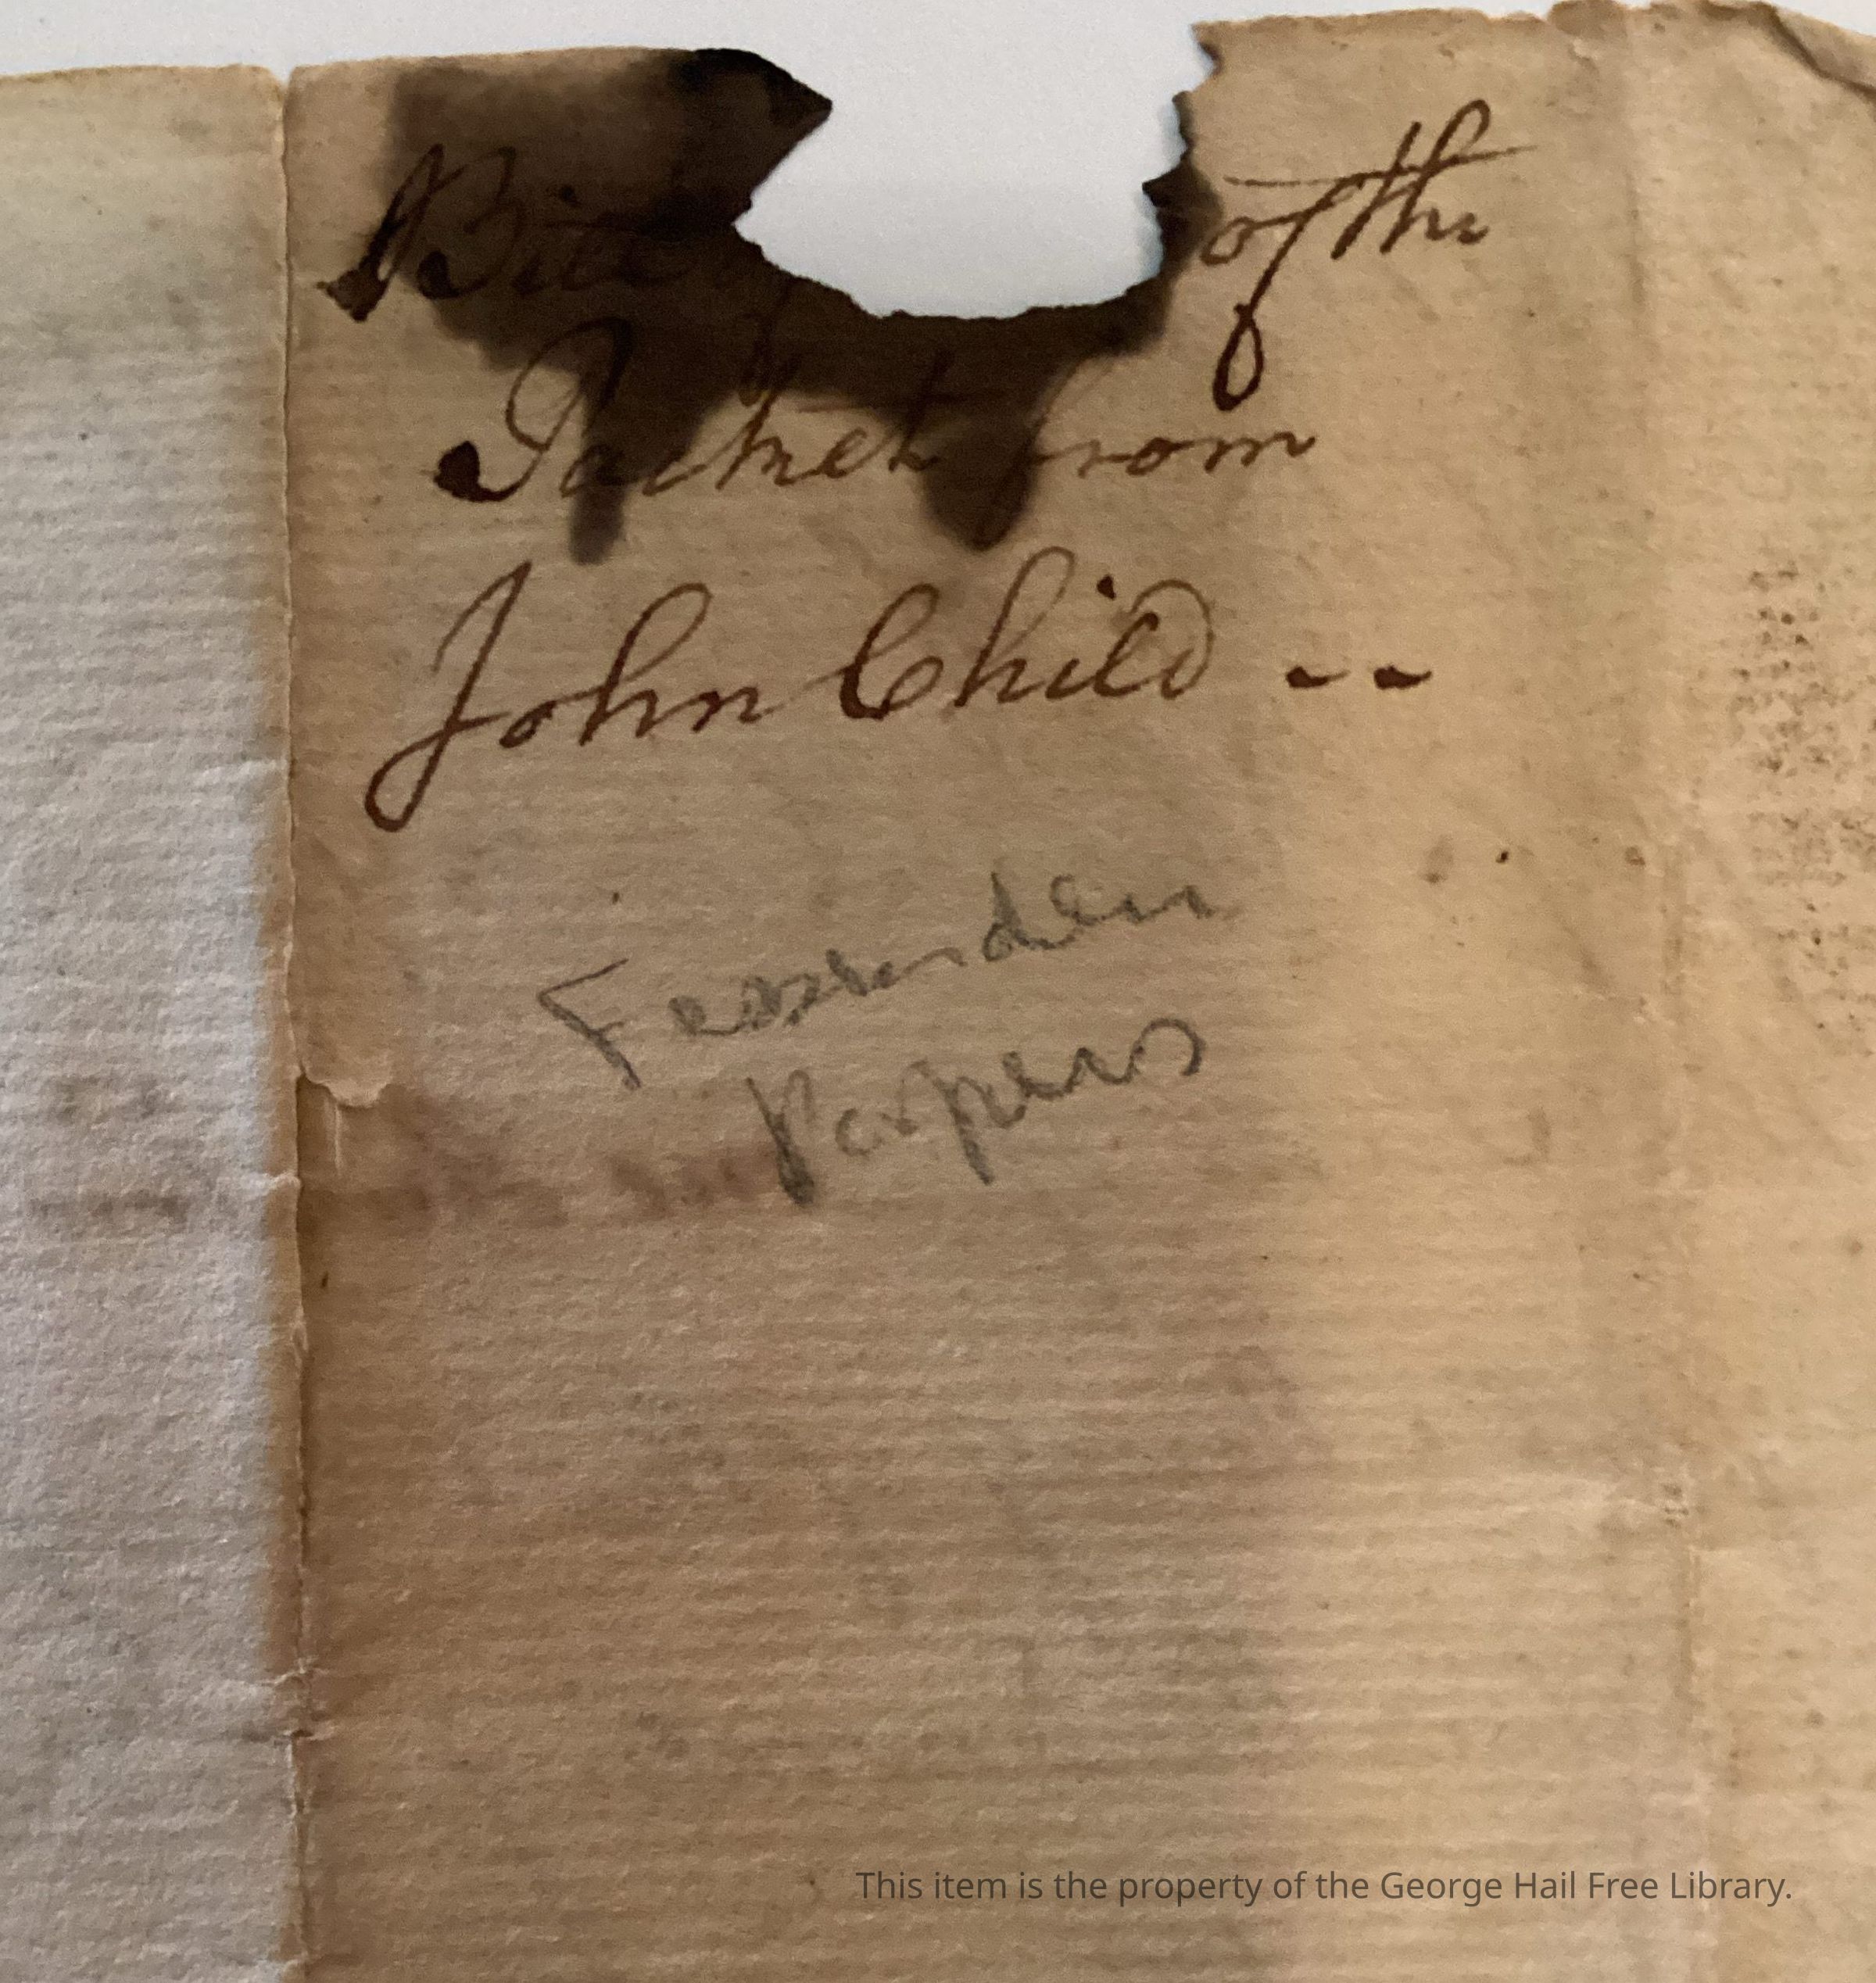 of the
Packet from
John Child --
Fessenden
Papers
This item is the property of the George Hail Free Library.